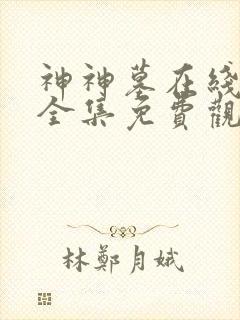 神神墓在綫
全集免費觀
林鄭月娥